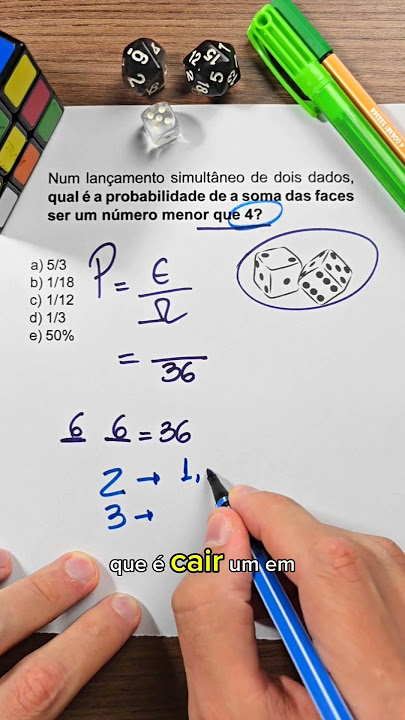 Num lançamento simultâneo de dois dados,
qual é a probabilidade de a soma das faces
ser um número menor que 4?
a) 5/3
b) 1/18
c) 1/12
d) 1/3
e) 50%
P = E / Ω
= — / 36
6 6 = 36
2 → 1,
3 →
que é cair um em